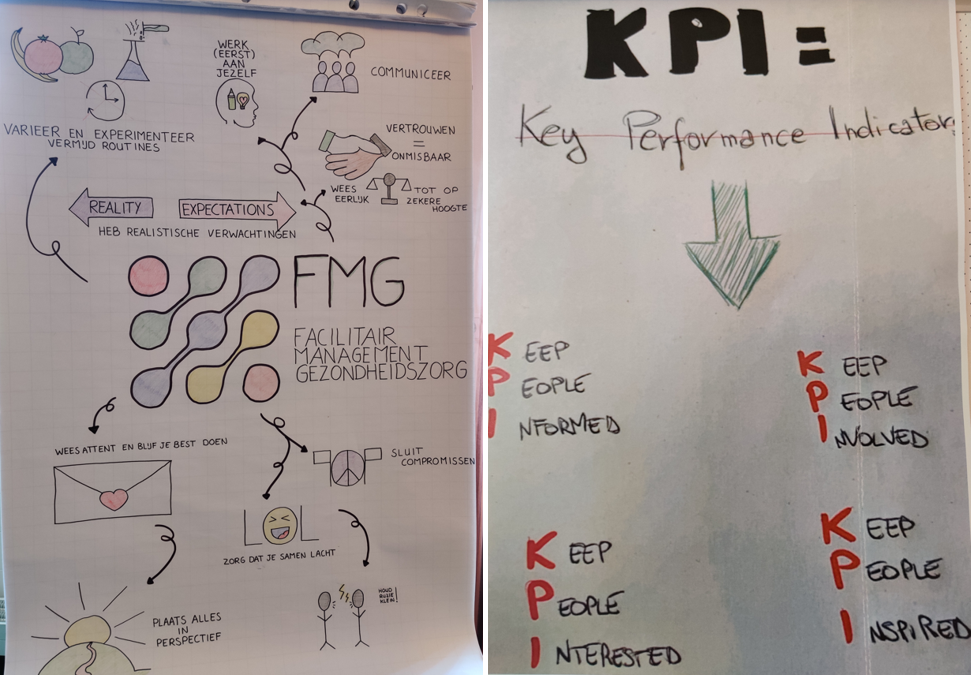 WERK
(EERST)
AAN
JEZELF
COMMUNICEER
VARIEER EN EXPERIMENTEER
VERMIJD ROUTINES
VERTROUWEN
=
ONMISBAAR
WEES
EERLIJK
TOT OP
ZEKERE
HOOGTE
REALITY
EXPECTATIONS
HEB REALISTISCHE VERWACHTINGEN
FMG
FACILITAIR
MANAGEMENT
GEZONDHEIDSZORG
WEES ATTENT EN BLIJF JE BEST DOEN
SLUIT
COMPROMISSEN
LOL
ZORG DAT JE SAMEN LACHT
HOUD
RUZIE
KLEIN!
PLAATS ALLES
IN
PERSPECTIEF
KPI =
Key Performance Indicator
KEEP
PEOPLE
INFORMED
KEEP
PEOPLE
INVOLVED
KEEP
PEOPLE
INTERESTED
KEEP
PEOPLE
INSPIRED